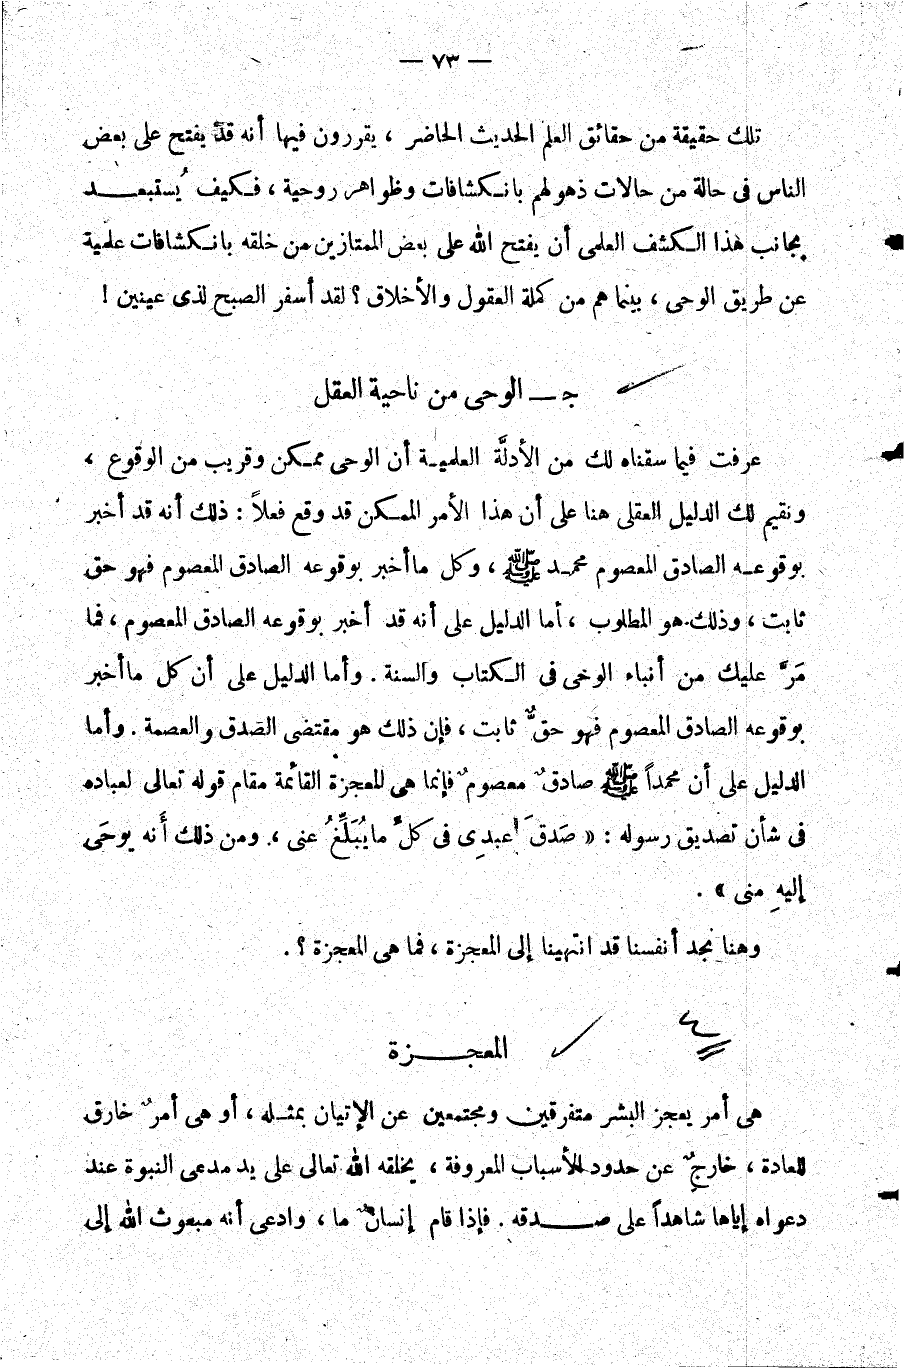 — ٧٣ —
تلك حقيقة من حقائق العلم الحديث الحاضر ، يقررون فيها أنه قد يفتح على بعض
الناس فى حالة من حالات ذهولهم بانكشافات وظواهر روحية ، فكيف يُستبعد
بجانب هذا الكشف العلمى أن يفتح الله على بعض الممتازين من خلقه بانكشافات علمية
عن طريق الوحى ، بينما هم من كملة العقول والأخلاق ؟ لقد أسفر الصبح لذى عينين !
جـ — الوحى من ناحية العقل
عرفت فيما سقناه لك من الأدلَّة العلمية أن الوحى ممكن وقريب من الوقوع ،
ونقيم لك الدليل العقلى هنا على أن هذا الأمر الممكن قد وقع فعلاً : ذلك أنه قد أخبر
بوقوعه الصادق المعصوم محمد ﷺ ، وكل ما أخبر بوقوعه الصادق المعصوم فهو حق
ثابت ، وذلك هو المطلوب ، أما الدليل على أنه قد أخبر بوقوعه الصادق المعصوم ، فما
مَرَّ عليك من أنباء الوحى فى الكتاب والسنة . وأما الدليل على أن كل ما أخبر
بوقوعه الصادق المعصوم فهو حقٌّ ثابت ، فإن ذلك هو مقتضى الصدق والعصمة . وأما
الدليل على أن محمداً ﷺ صادقٌ معصومٌ فإنما هى المعجزة القائمة مقام قوله تعالى لعباده
فى شأن تصديق رسوله : « صَدقَ عبدِى فى كلِّ ما يُبَلِّغُ عنى ، ومن ذلك أَنه يوحَى
إليهِ منى » .
وهنا نجد أنفسنا قد انتهينا إلى المعجزة ، فما هى المعجزة ؟ .
المعجزة
هى أمر يعجز البشر متفرقين ومجتمعين عن الإتيان بمثله ، أو هى أمرٌ خارق
للعادة ، خارجٌ عن حدود الأسباب المعروفة ، يخلقه الله تعالى على يد مدعى النبوة عند
دعواه إياها شاهداً على صدقه . فإذا قام إنسانٌ ما ، وادعى أنه مبعوث الله إلى